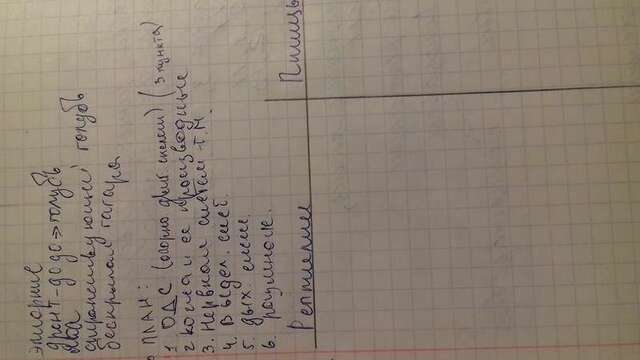 эпиорнис
дронт-додо => голубь
моа
странствующий голубь
бескрылая гагара
ПЛАН:
1. ОДС (опорно двиг система) (3 пункта)
2 кожа и ее производные
3. Нервная система + Г.М.
4. Выдел. сист.
5. дых. сист.
6. размнож.
Рептилии Птицы